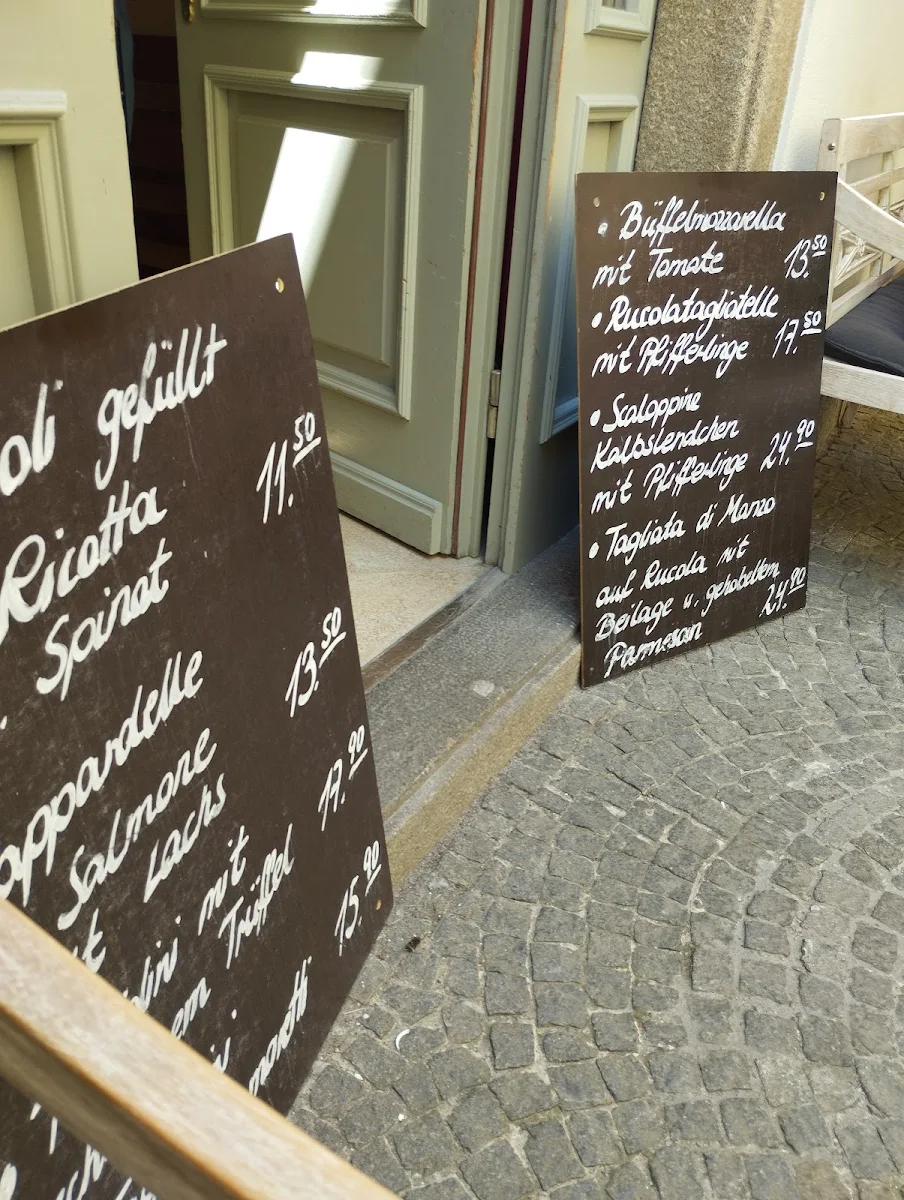 gefüllt
11.50
Ricotta
Spinat
13.50
Salmone
Lachs
17.90
mit
Trüffel
15.90
• Büffelmozzarella
mit Tomate 13.50
• Rucolatagliatelle
mit Pfifferlinge 17.50
• Scaloppine
Kalbslendchen
mit Pfifferlinge 24.90
• Tagliata di Manzo
auf Rucola mit
Beilage u. gehobeltem
Parmesan 24.90